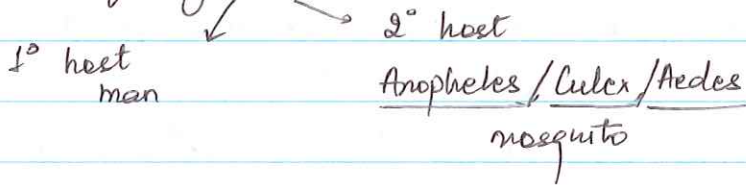 2° host
1° host
man
Anopheles / Culex / Aedes
mosquito